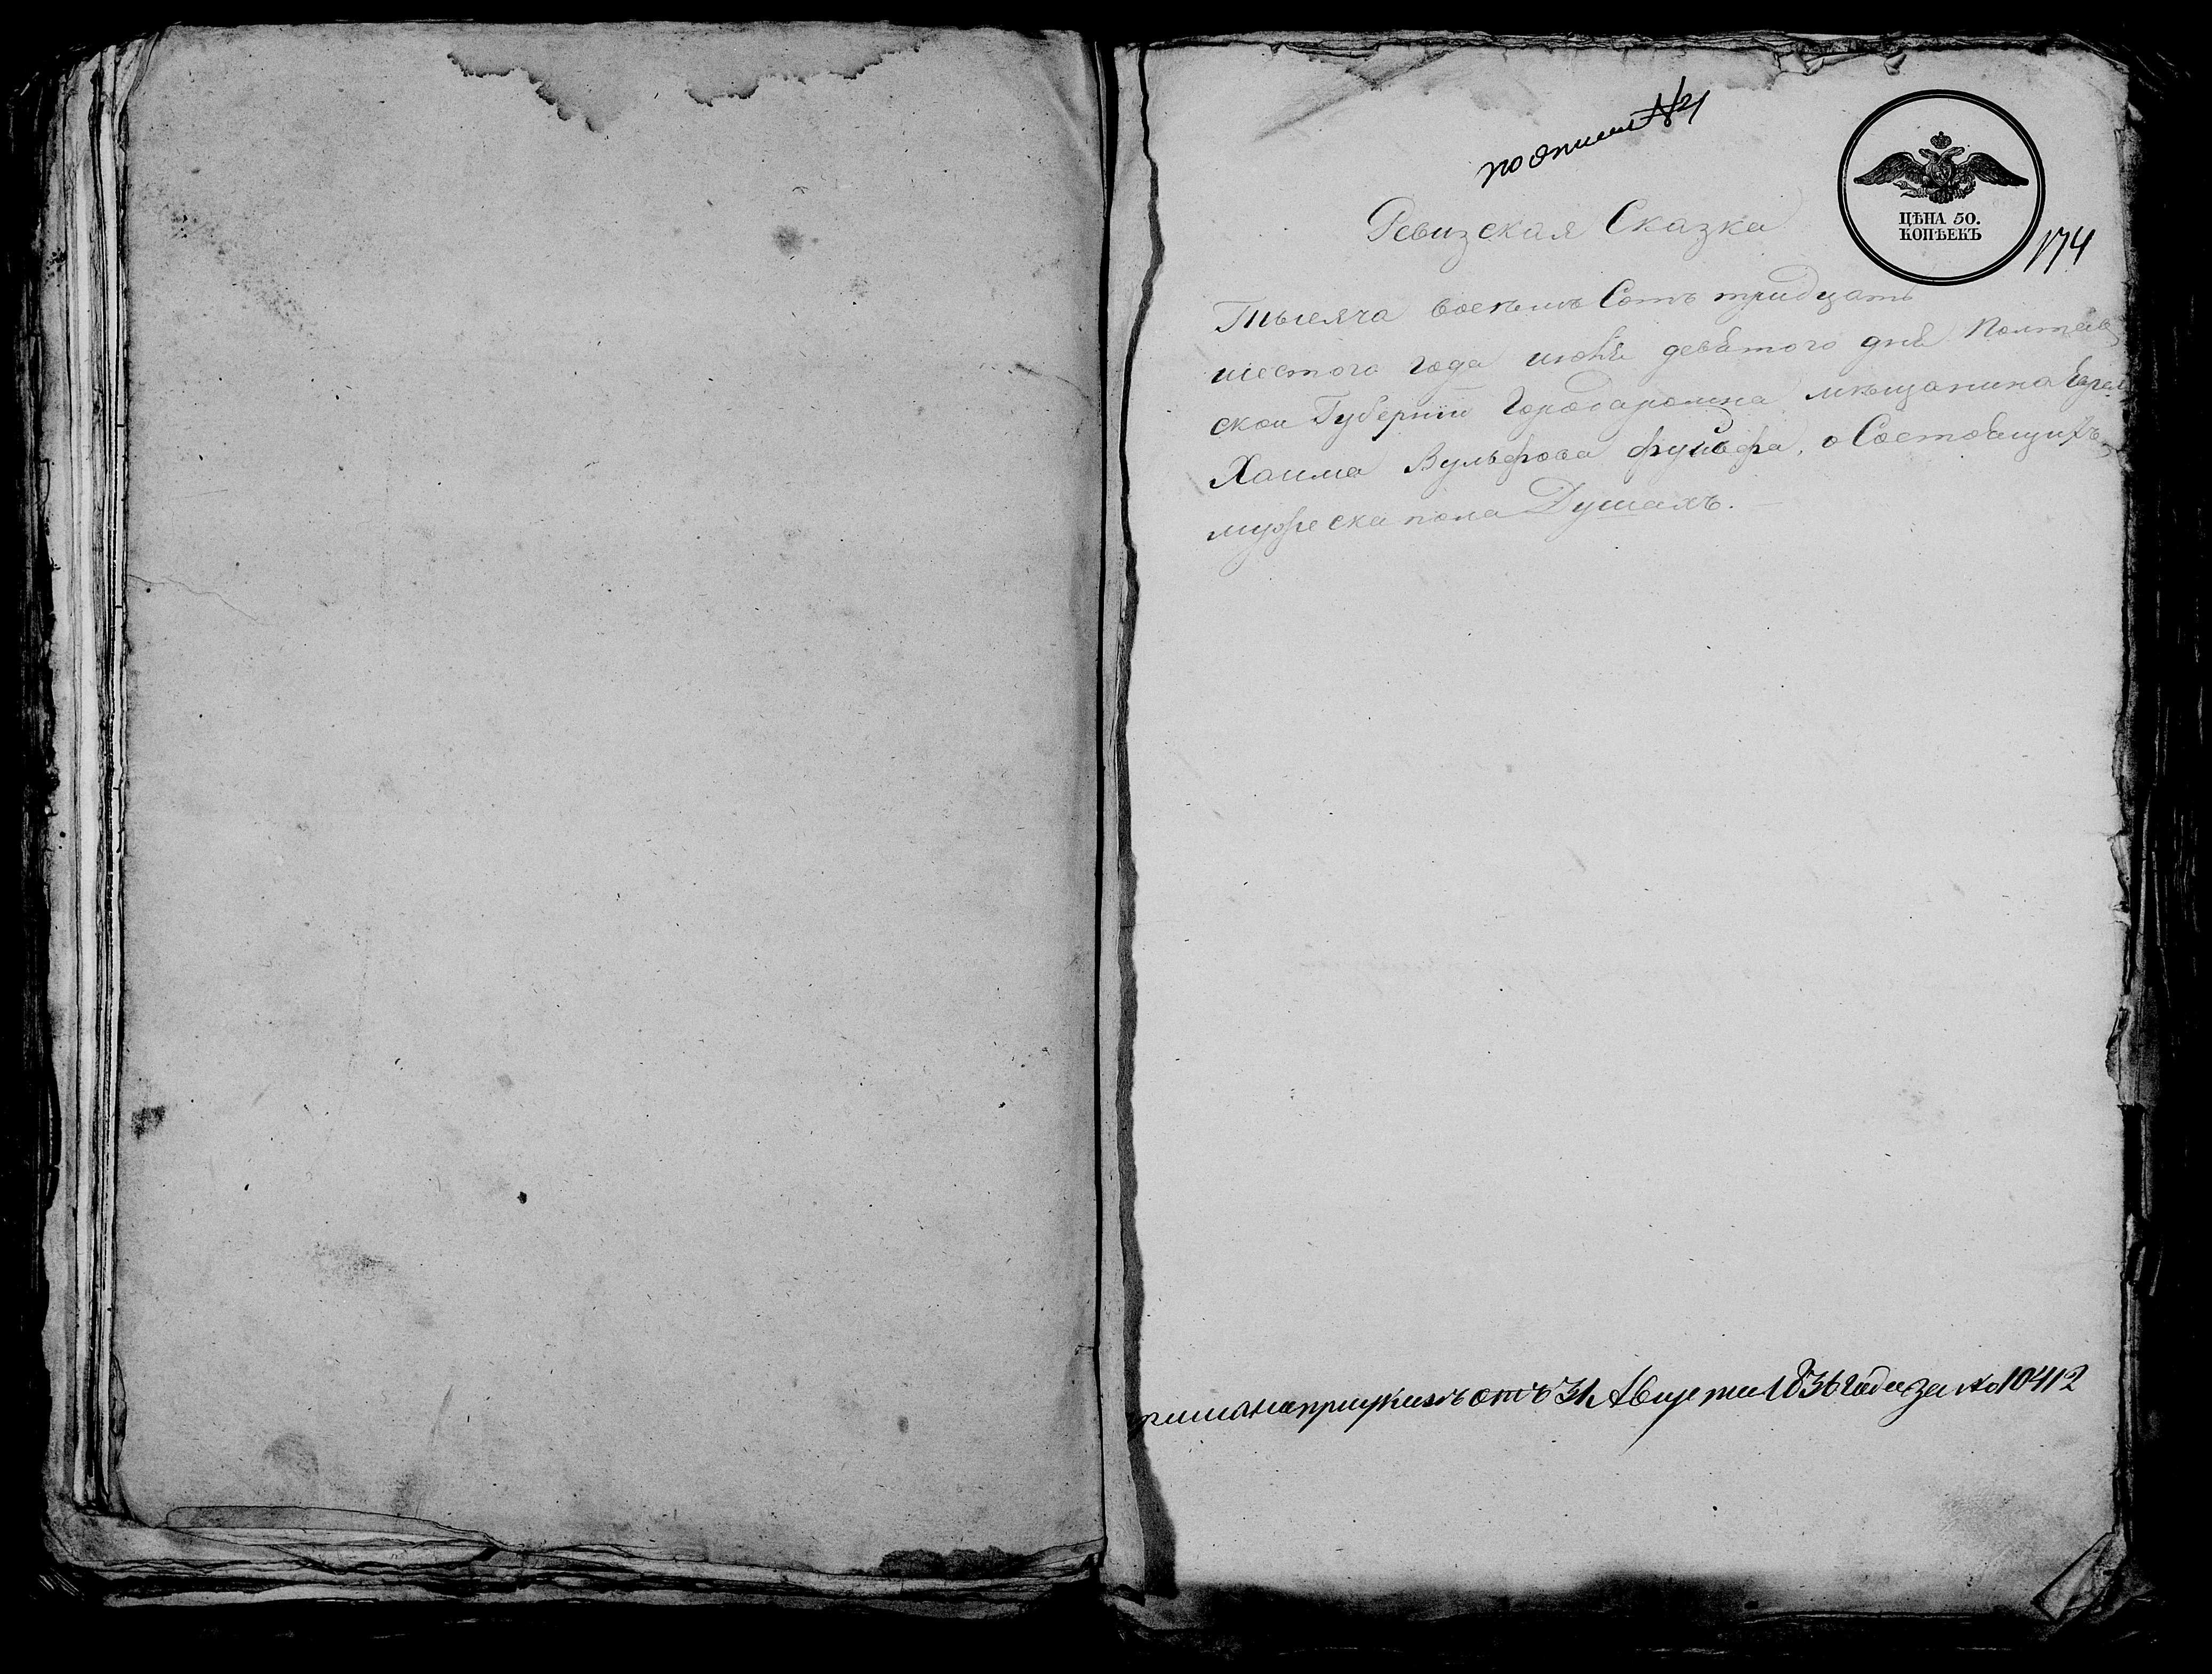 по описи №21
Ревизская Сказка
ЦѢНА 50.
КОПѢЕКЪ
174
Тысяча восемъ Сотъ тридцать
шестого года июня девятого дня Полтав
ской Губернии Города ромна мѣщанина Еврея
Хаима Вульфова о Состоящихъ
мужеска пола Душахъ.
при указѣ отъ 31 Августа 1836 года за № 10412